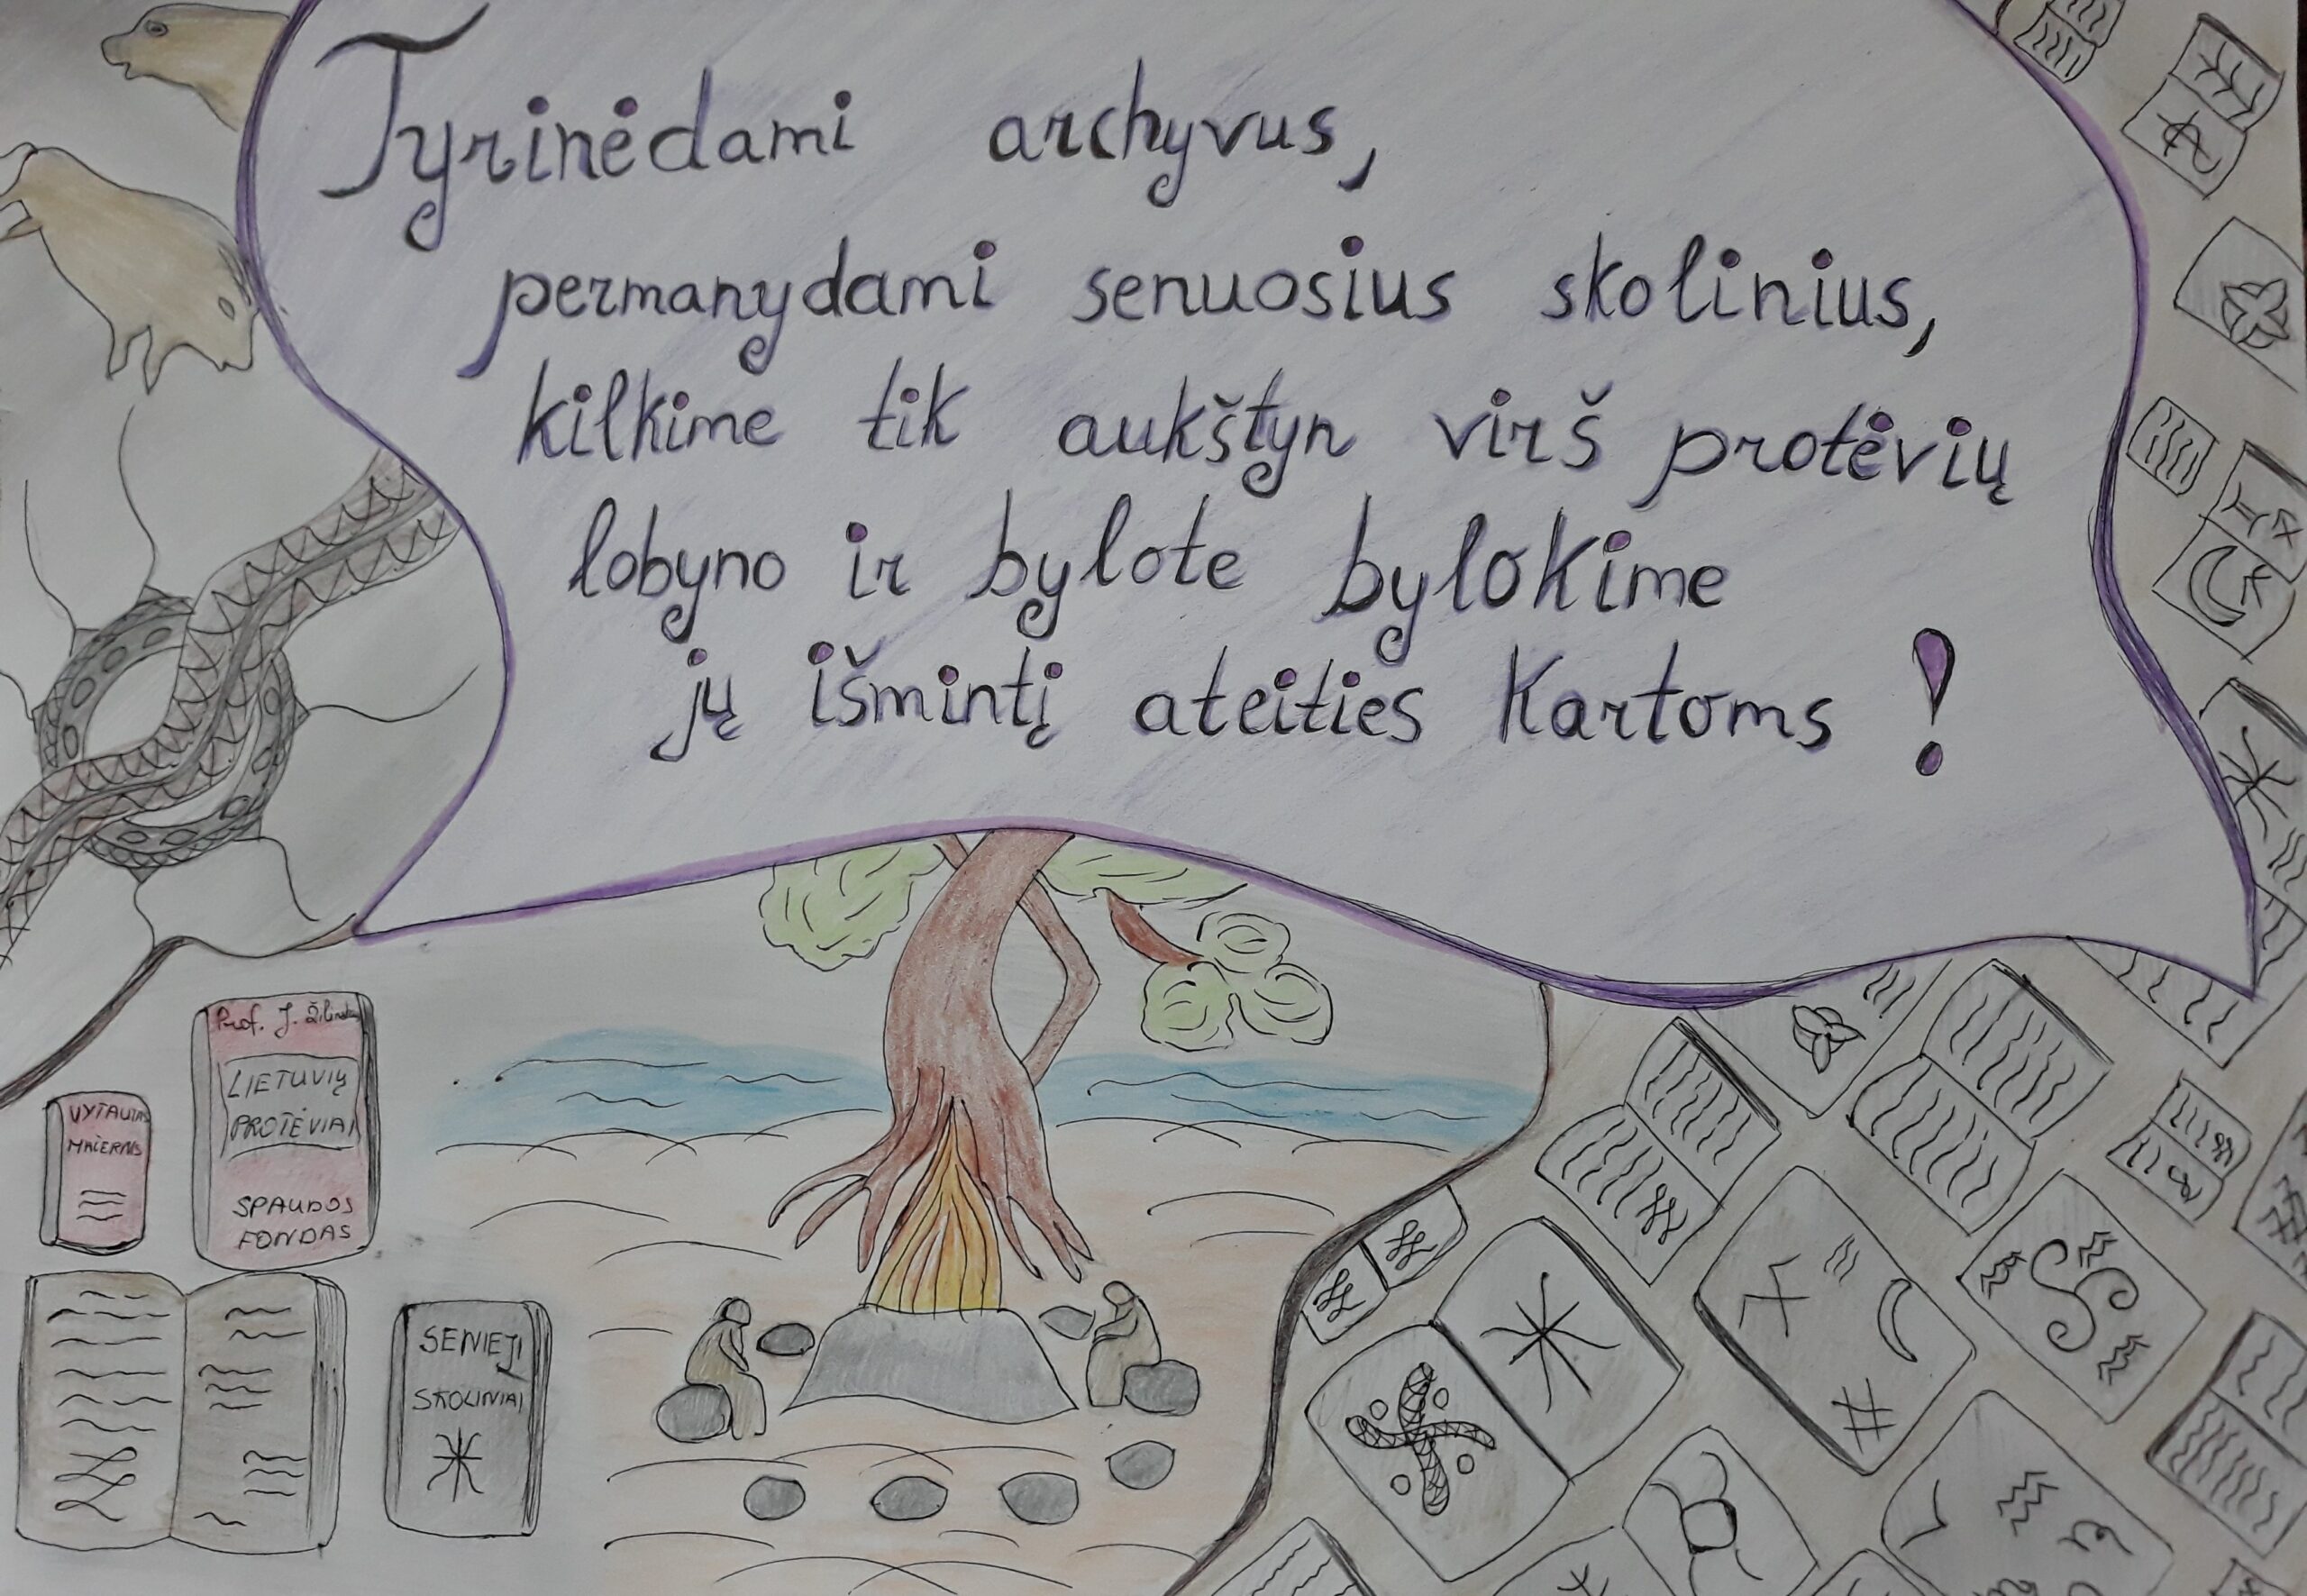 Tyrinėdami archyvus,
permanydami senuosius skolinius,
kilkime tik aukštyn virš protėvių
lobyno ir bylote bylokime
jų išmintį ateities kartoms!
Prof. J. Žilinskas
LIETUVIŲ
PROTĖVIAI
SPAUDOS
FONDAS
VYTAUTAS
MAČERNIS
SENIEJI
SKOLINIAI